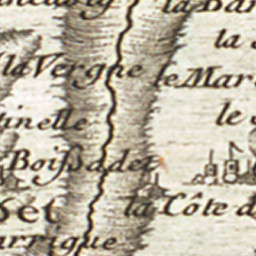 la Bar
la
la Vergne le Mar
tinelle le
Boiſſadet
Set la Côte d
arrigue